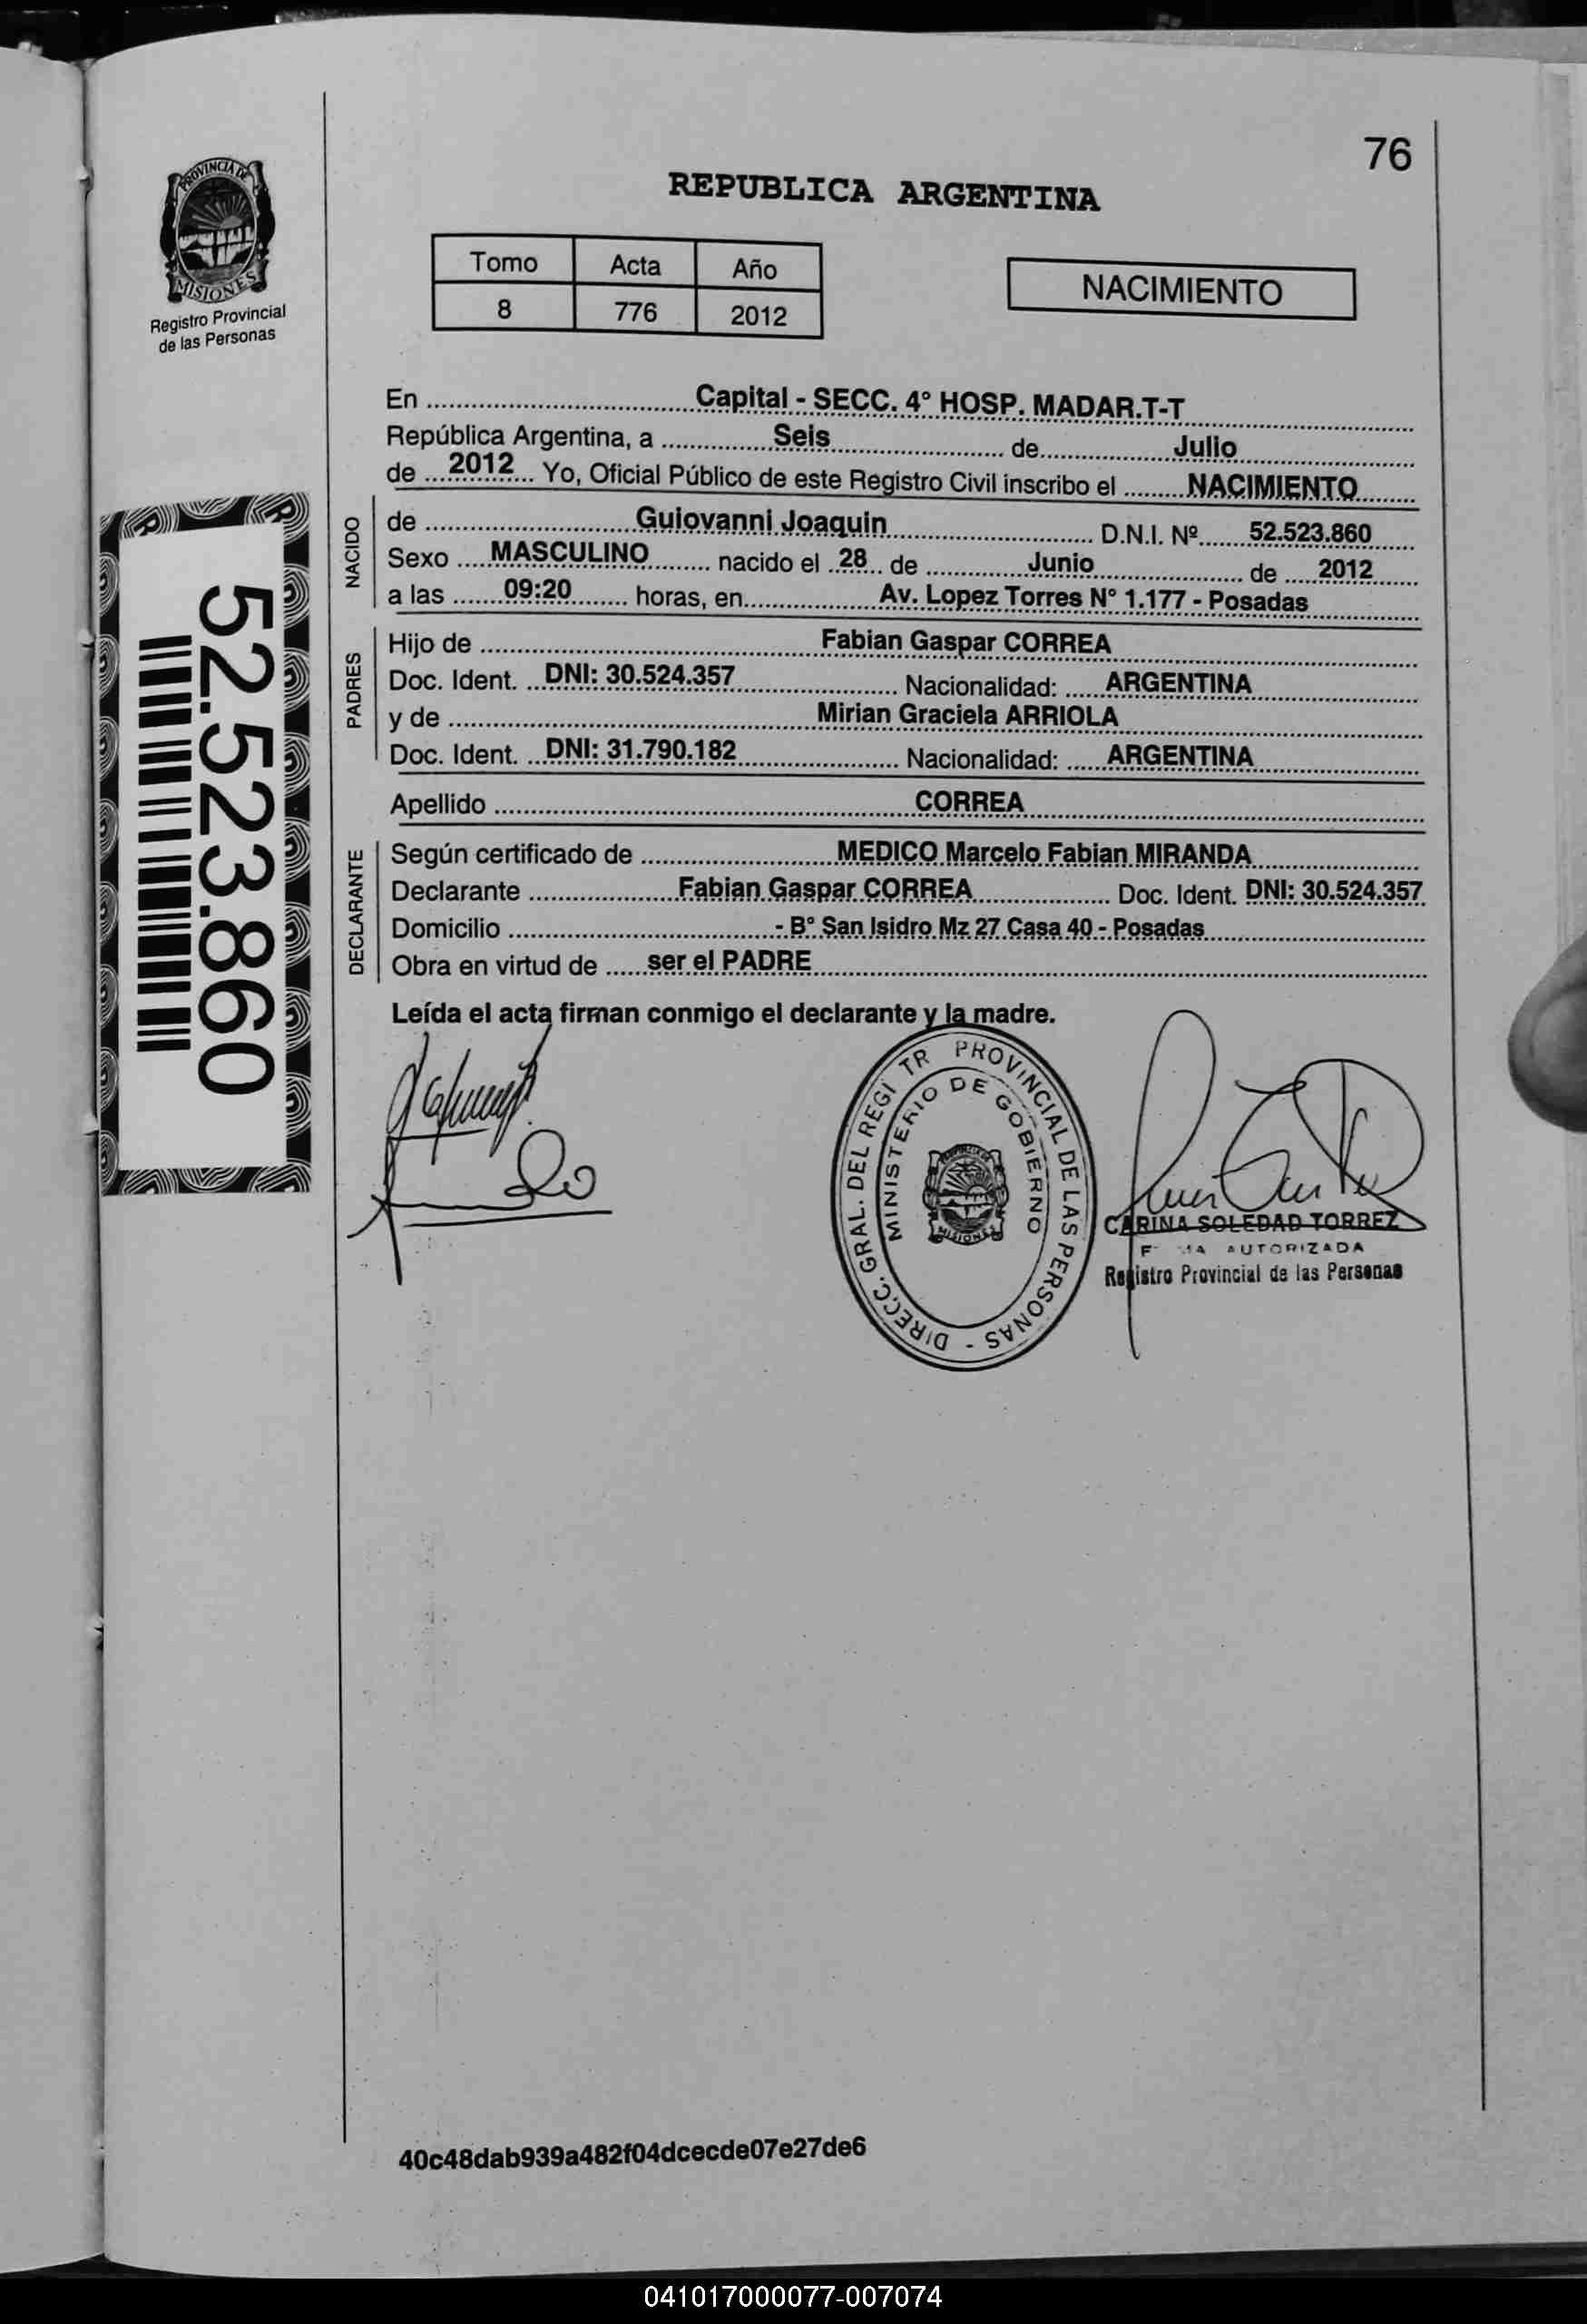 76
PROVINCIA DE
MISIONES
Registro Provincial
de las Personas
REPUBLICA ARGENTINA
Tomo Acta Año
8 776 2012
NACIMIENTO
En Capital - SECC. 4° HOSP. MADAR.T-T
República Argentina, a Seis de Julio
de 2012 Yo, Oficial Público de este Registro Civil inscribo el NACIMIENTO
NACIDO
de Guiovanni Joaquin D.N.I. Nº 52.523.860
Sexo MASCULINO nacido el 28 de Junio de 2012
a las 09:20 horas, en Av. Lopez Torres N° 1.177 - Posadas
PADRES
Hijo de Fabian Gaspar CORREA
Doc. Ident. DNI: 30.524.357 Nacionalidad: ARGENTINA
y de Mirian Graciela ARRIOLA
Doc. Ident. DNI: 31.790.182 Nacionalidad: ARGENTINA
Apellido CORREA
DECLARANTE
Según certificado de MEDICO Marcelo Fabian MIRANDA
Declarante Fabian Gaspar CORREA Doc. Ident. DNI: 30.524.357
Domicilio - B° San Isidro Mz 27 Casa 40 - Posadas
Obra en virtud de ser el PADRE
Leída el acta firman conmigo el declarante y la madre.
52.523.860
DIRECC. GRAL. DEL REGI TR PROVINCIAL DE LAS PERSONAS -
MINISTERIO DE GOBIERNO
MISIONES
CARINA SOLEDAD TORREZ
AUTORIZADA
Registro Provincial de las Personas
40c48dab939a482f04dcecde07e27de6
041017000077-007074